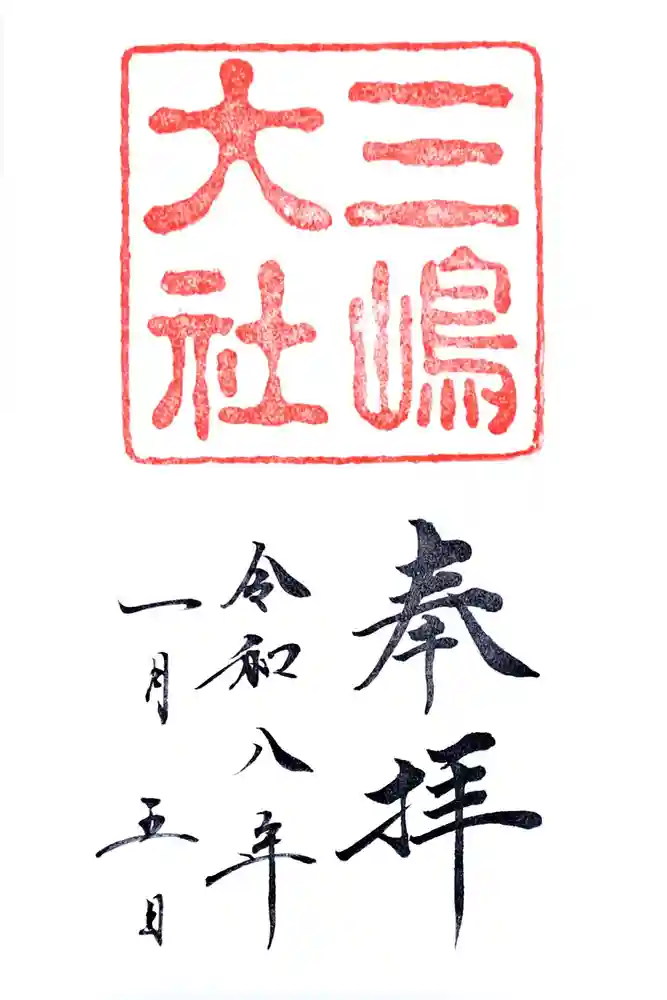 三嶋
大社
奉拝
令和八年
一月五日